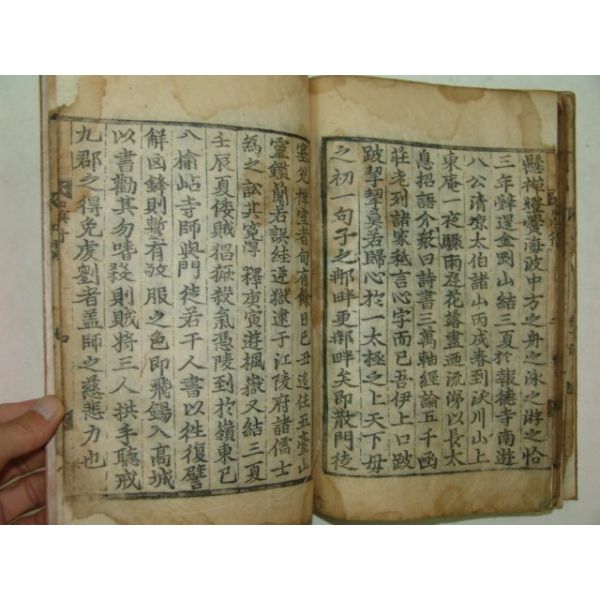 懸禪嬉憂海波中方之舟之泳之游之恰
三年辭還金剛山結三夏於報德寺南遊
八公淸凉太伯諸山丙戌春到沃川山上
東庵一夜驟雨庭花落盡洒流涕以長太
息招語介衆曰詩書三萬軸經論五千凾
莊老列諸家秪言心字而已吾伊上口跛
跛挈挈莫若歸心於一太極之上天下母
之初一句子之那畔更那畔矣即散門徒
塞兌禪室者旬有餘日己丑適住五臺山
靈鑑蘭若誤絓逆獄逮于江陵府諸儒士
爲之訟其寃得釋庚寅遊楓嶽又結三夏
壬辰夏倭賊猖獗殺氣憑陵到於嶺東已
入楡岾寺師與門徒若干人書以徃復譬
解鋒則有敬服之色即飛錫入高城
以書勸其勿嗜殺則賊將三人拱手聽戒
九郡之得免虔劉者盖師之慈悲力也